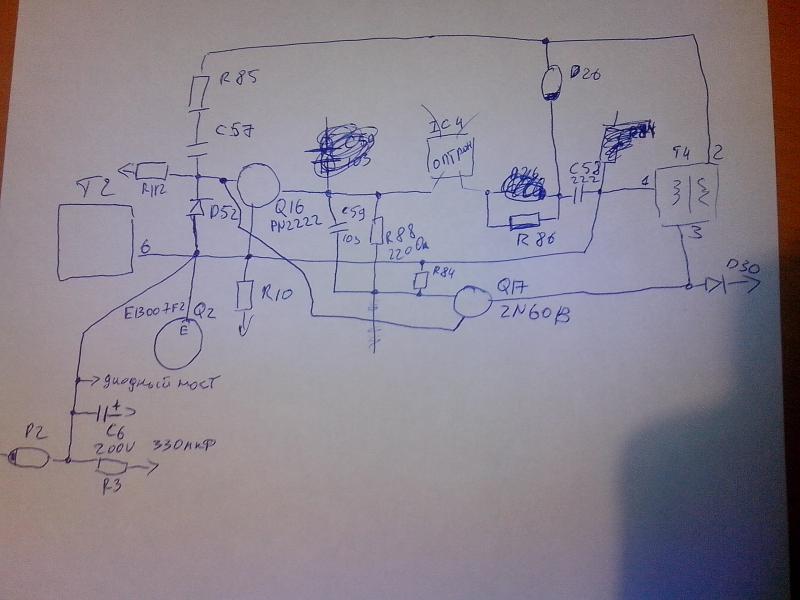 R85
D26
C57
IC4
ОПТРОН
T4
2
R112
T2
D52
Q16
PN2222
C59
103
R88
220Ом
C58
222
1
3
R86
6
R84
Q17
2N60B
D30
R10
E13007F2
Q2
E
диодный мост
+
C6
200V 330мкФ
P2
R3